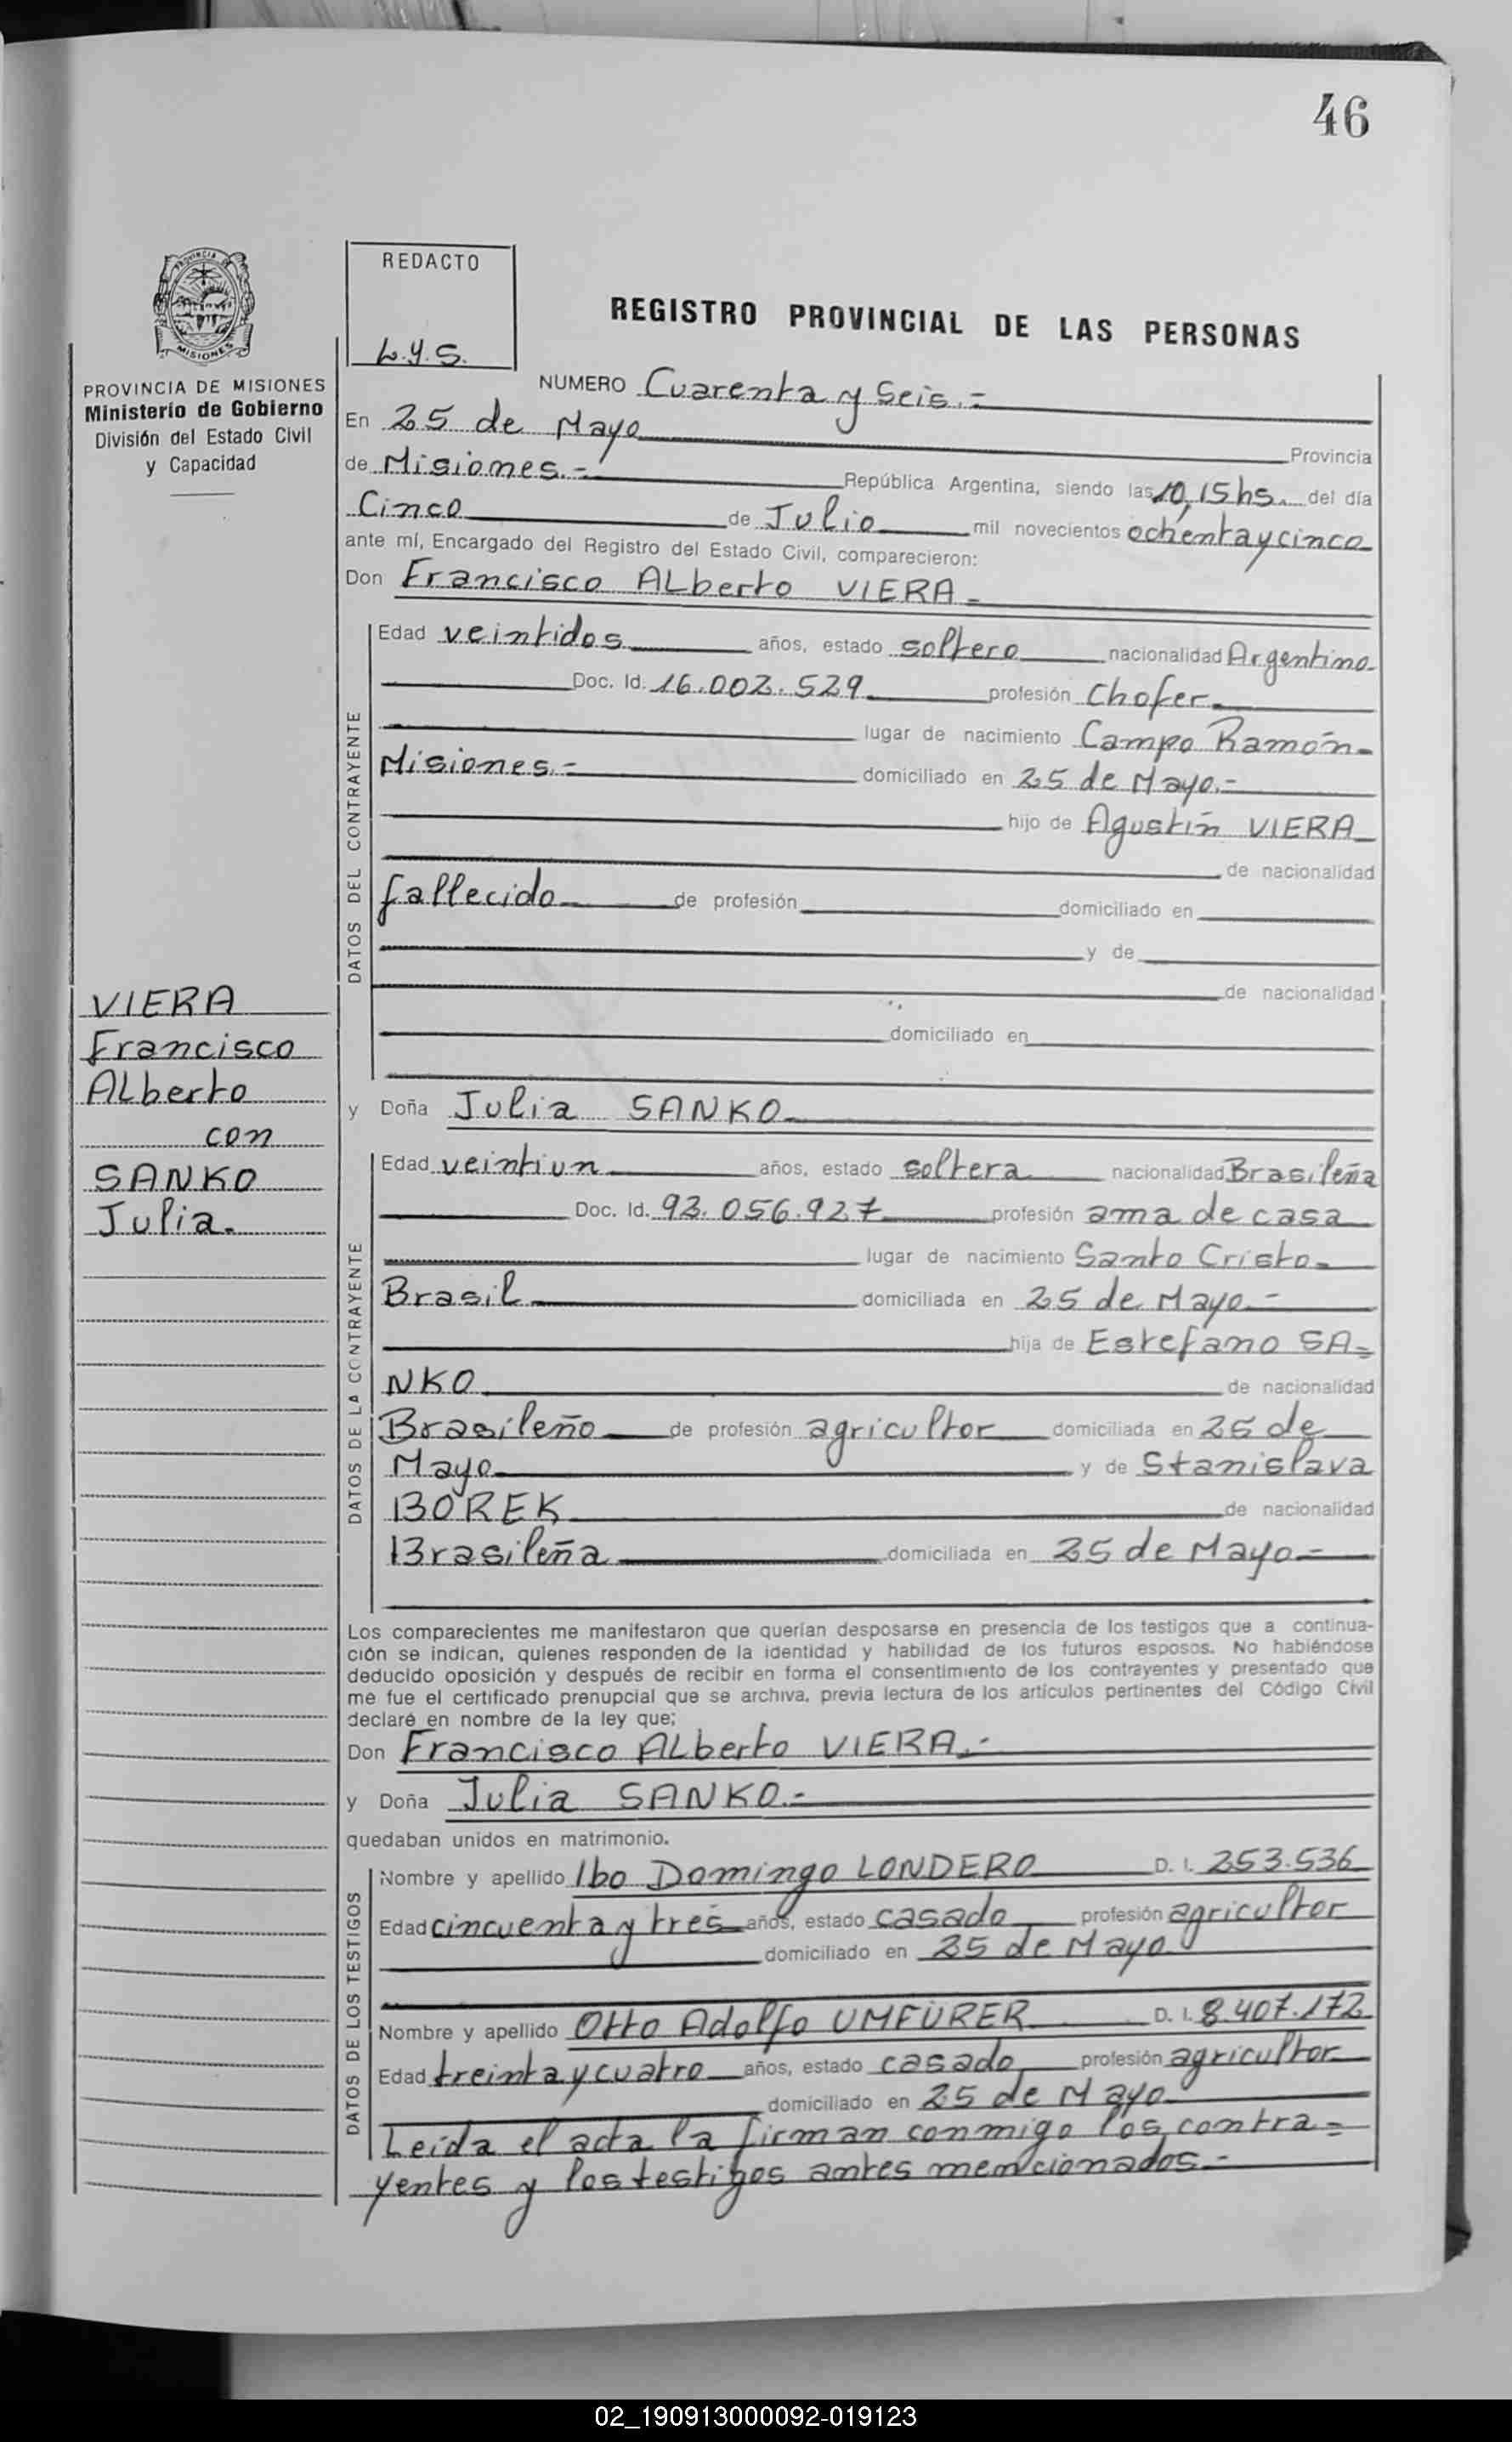 46
PROVINCIA DE
MISIONES
PROVINCIA DE MISIONES
Ministerio de Gobierno
División del Estado Civil
y Capacidad
REDACTO
L.y.S.
REGISTRO PROVINCIAL DE LAS PERSONAS
NUMERO Cuarenta y Seis.=
En 25 de Mayo Provincia
de Misiones.= República Argentina, siendo las 10,15 hs. del día
Cinco de Julio mil novecientos ochenta y cinco
ante mí, Encargado del Registro del Estado Civil, comparecieron:
Don Francisco ALberto VIERA=
DATOS DEL CONTRAYENTE
Edad veintidos años, estado soltero nacionalidad Argentino
Doc. Id. 16.002.529 profesión Chofer
lugar de nacimiento Campo Ramón-
Misiones.= domiciliado en 25 de Mayo.=
hijo de Agustín VIERA
de nacionalidad
fallecido de profesión domiciliado en
y de
de nacionalidad
domiciliado en
VIERA
Francisco
ALberto
con
SANKO
Julia.
y Doña Julia SANKO
DATOS DE LA CONTRAYENTE
Edad veintiun años, estado soltera nacionalidad Brasileña
Doc. Id. 92.056.927 profesión ama de casa
lugar de nacimiento Santo Cristo-
Brasil domiciliada en 25 de Mayo.=
hija de Estefano SA=
NKO de nacionalidad
Brasileño de profesión agricultor domiciliada en 25 de
Mayo y de Stanislava
BOREK de nacionalidad
Brasileña domiciliada en 25 de Mayo.=
Los comparecientes me manifestaron que querían desposarse en presencia de los testigos que a continua-
ción se indican, quienes responden de la identidad y habilidad de los futuros esposos. No habiéndose
deducido oposición y después de recibir en forma el consentimiento de los contrayentes y presentado que
me fue el certificado prenupcial que se archiva, previa lectura de los artículos pertinentes del Código Civil
declaré en nombre de la ley que;
Don Francisco ALberto VIERA.=
y Doña Julia SANKO.=
quedaban unidos en matrimonio.
DATOS DE LOS TESTIGOS
Nombre y apellido Ibo Domingo LONDERO D. I. 253.536
Edad cincuenta y tres años, estado casado profesión agricultor
domiciliado en 25 de Mayo
Nombre y apellido Otto Adolfo UMFÜRER D. I. 8.407.172
Edad treinta y cuatro años, estado casado profesión agricultor
domiciliado en 25 de Mayo
Leída el acta la firman conmigo los contra=
yentes y los testigos antes mencionados.=
02_190913000092-019123